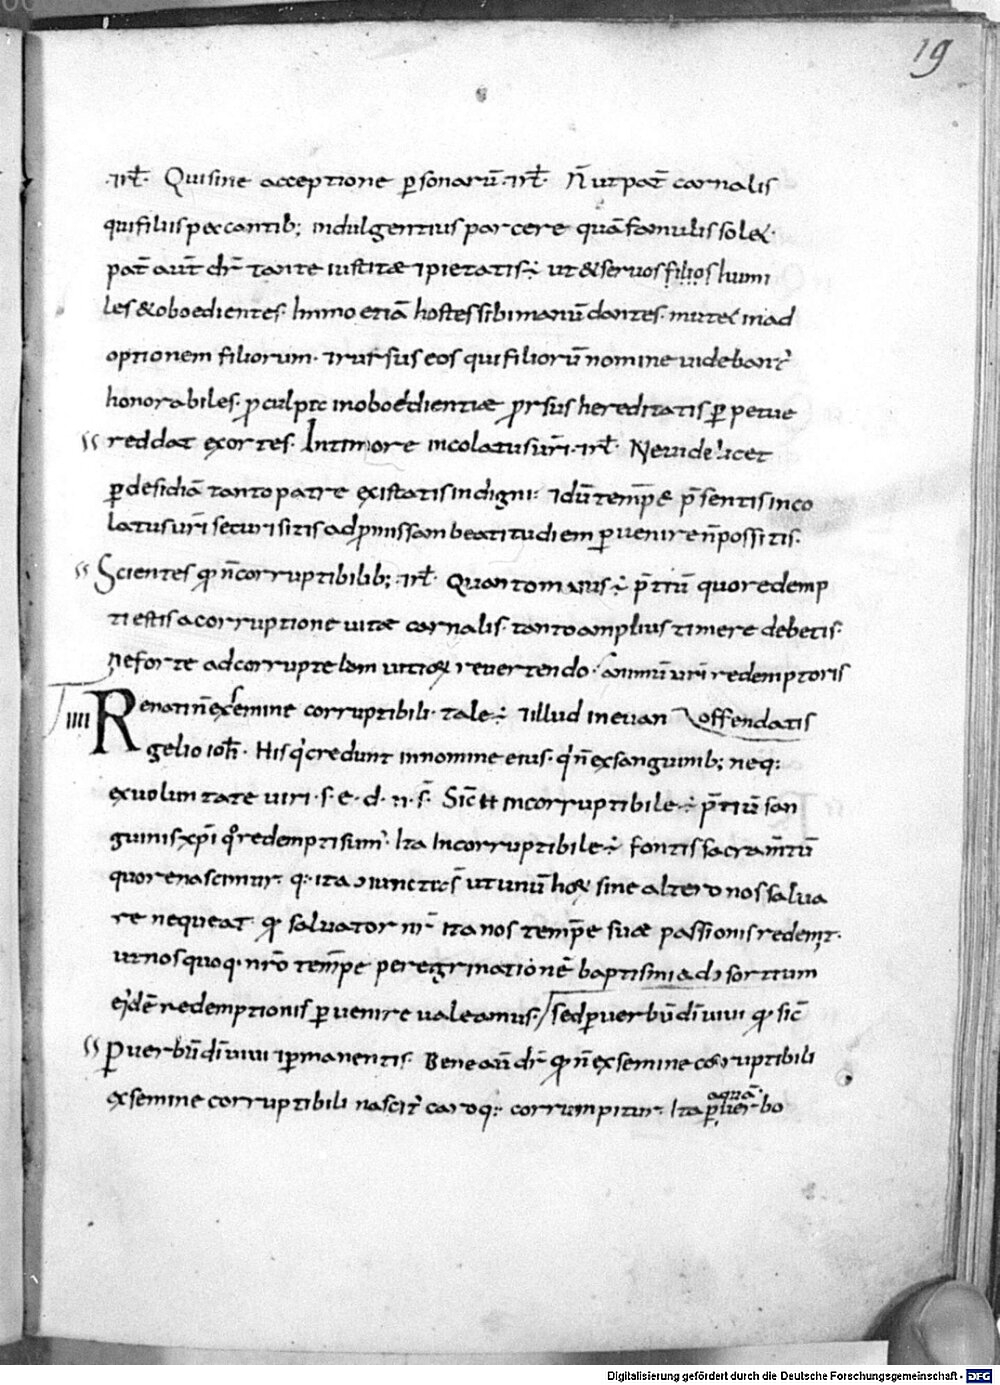 19
·&rl· Qui sine acceptione ꝑsonarū. &rl· N̄ ut pat̄ carnalis
qui filiis peccantib; indulgentius parcere quā famulis sol&
pat̄ aut̄ dr̄ tante iustitiae ⁊ pietatis ÷ ut & seruos filios humi
les & oboedientes. Immo etiā hostes sibi manū dantes. mut& in ad
optionem filiorum. ⁊ rursus eos qui filiorū nomine uidebant̄
honorabiles. ꝓ culpae inoboedientiae ꝓrsus hereditatis ꝑpetue
reddat exortes. In timore incolatus ur̄i. &rl· Ne uidelicet
ꝑ desidiā tanto patre existatis indigni. ⁊ dū temp̄e p̄sentis inco
latus ur̄i securi sitis ad ꝓmissam beatitudiem ꝑuenire n̄ possitis.
Scientes qđ n̄ corruptibilib; &rl· Quanto maius ÷ p̄tiū quo redemp
ti estis a corruptione uitae carnalis. tanto amplius timere debetis.
ne forte ad corruptelam uitioꝝ reuertendo. animū ur̄i redemptoris
offendatis
IIII Renati n̄ ex semine corruptibili. tale ÷ ⁊ illud in euan
gelio ioh̄. His q̇ credunt in nomine eius. q̇ n̄ ex sanguinib; neq;
ex uoluntate uiri. s. e. d. n. s̄. Sic̄ &t incorruptibile ÷ p̄tiū san
guinis xp̄i qͦ redempti sum̄. Ita incorruptibile ÷ fontis sacram̄tū
quo renascimur. q; ita ɔiuncti s̄ ut unū hoꝝ sine altero nos salua
re nequeat. qđ saluator nr̄ ita nos temp̄e suae passionis redemt.
ut nos quoq; nr̄o temp̄e peregrinationē baptismi ad ɔsortium
ei'dē redemptionis ꝑuenire ualeamus. / sed ꝑ uerbū dī uiui qđ sic̄
Ꝑ uerbū dī uiui ⁊ ꝑmanentis. Bene aut̄ dr̄ qđ n̄ ex semine corruptibili
ex semine corruptibili nascit̄ caro q; corrumpitur. Ita ꝑ aquā uerbo